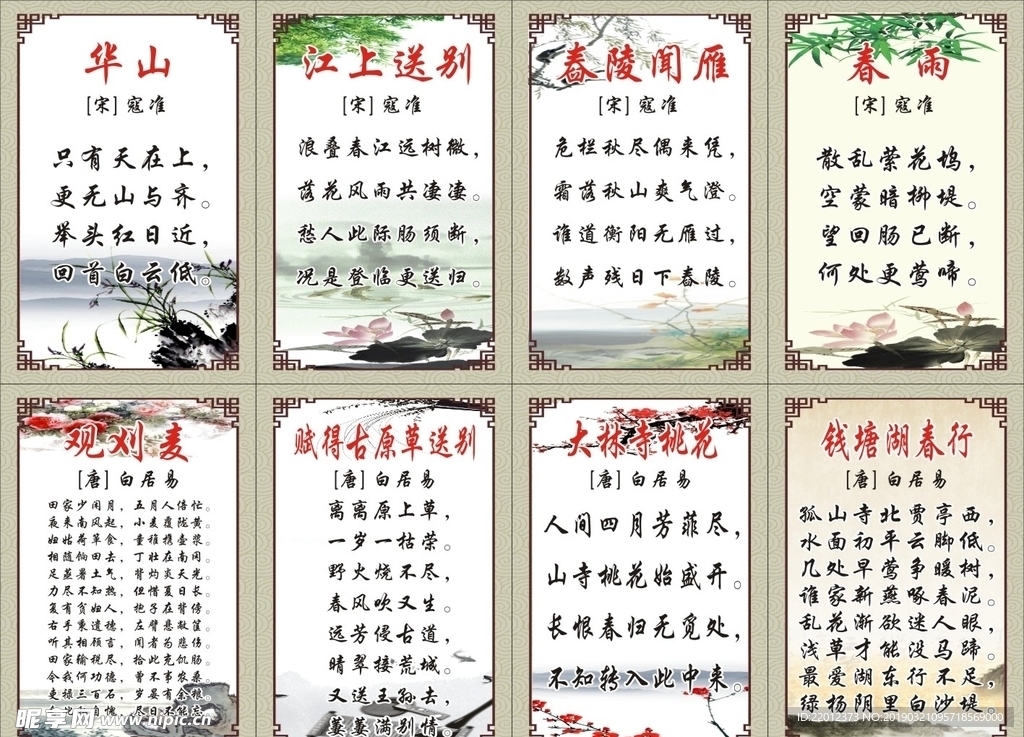 华山
[宋] 寇准
只有天在上，
更无山与齐。
举头红日近，
回首白云低。
江上送别
[宋] 寇准
浪叠春江远树微，
落花风雨共凄凄。
愁人此际肠须断，
况是登临更送归。
春陵闻雁
[宋] 寇准
危栏秋尽偶来凭，
霜落秋山爽气澄。
谁道衡阳无雁过，
数声残日下春陵。
春雨
[宋] 寇准
散乱萦花坞，
空蒙暗柳堤。
望回肠已断，
何处更莺啼。
观刈麦
[唐] 白居易
田家少闲月，五月人倍忙。
夜来南风起，小麦覆陇黄。
妇姑荷箪食，童稚携壶浆。
相随饷田去，丁壮在南冈。
足蒸暑土气，背灼炎天光。
力尽不知热，但惜夏日长。
复有贫妇人，抱子在背傍。
右手秉遗穗，左臂悬敝筐。
听其相顾言，闻者为悲伤。
田家输税尽，拾此充饥肠。
今我何功德，曾不事农桑。
吏禄三百石，岁晏有余粮。
尽日不能忘。
赋得古原草送别
[唐] 白居易
离离原上草，
一岁一枯荣。
野火烧不尽，
春风吹又生。
远芳侵古道，
晴翠接荒城。
又送王孙去，
萋萋满别情。
大林寺桃花
[唐] 白居易
人间四月芳菲尽，
山寺桃花始盛开。
长恨春归无觅处，
不知转入此中来。
钱塘湖春行
[唐] 白居易
孤山寺北贾亭西，
水面初平云脚低。
几处早莺争暖树，
谁家新燕啄春泥。
乱花渐欲迷人眼，
浅草才能没马蹄。
最爱湖东行不足，
绿杨阴里白沙堤。
昵享网 www.nipic.cn
ID:22012373 NO:20190321095718569000